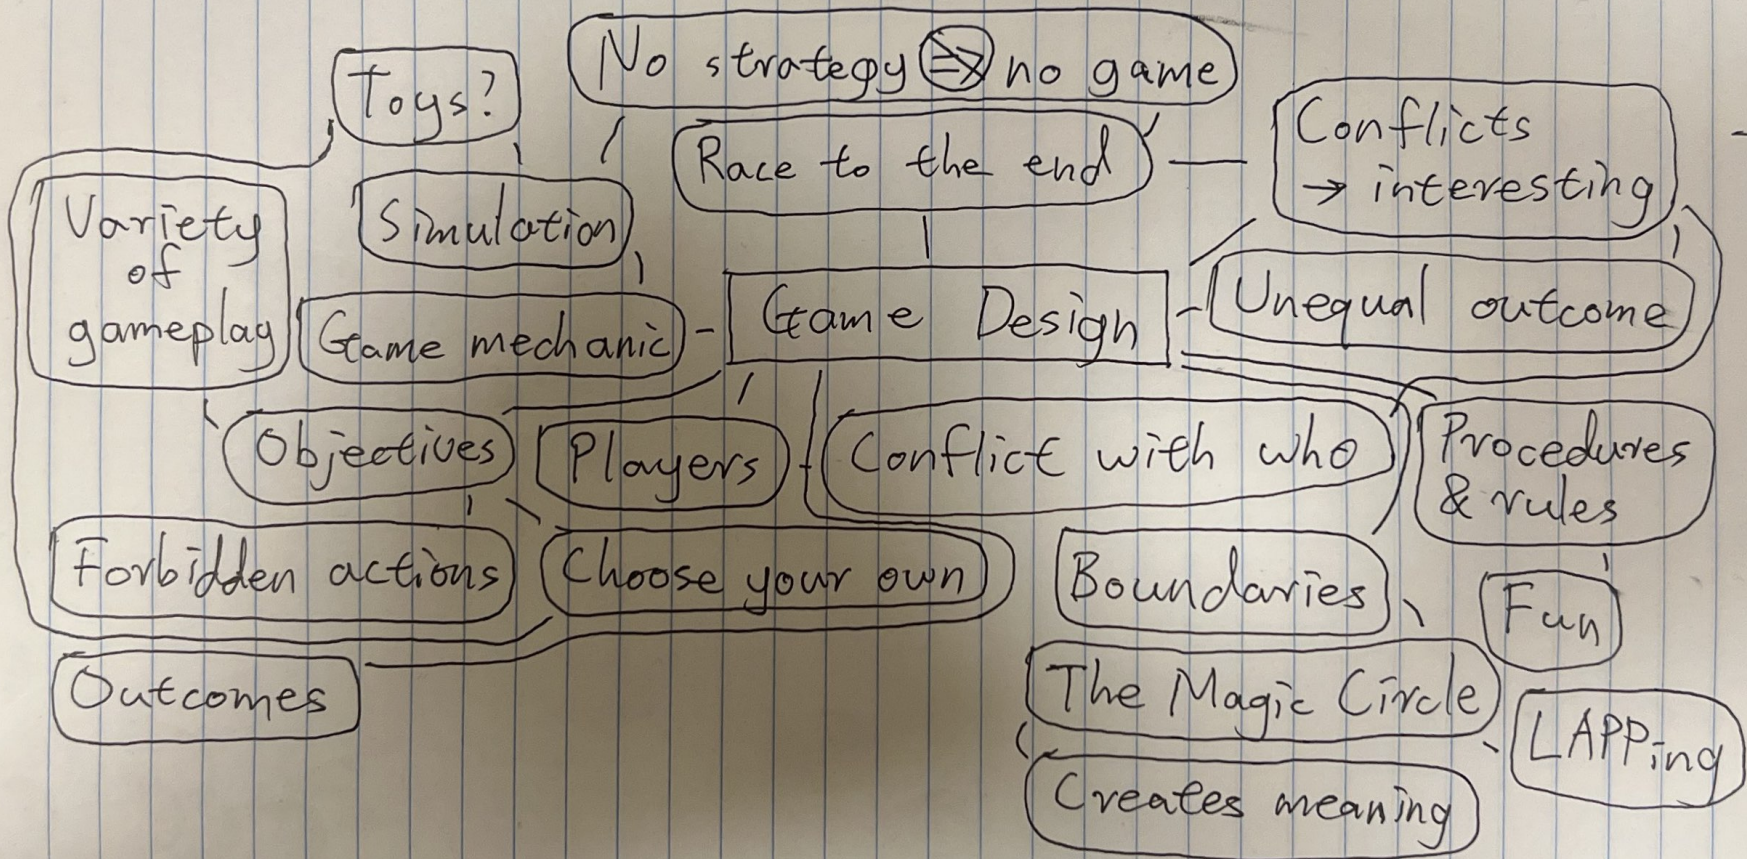 No strategy ⇏ no game
Toys?
Race to the end
Conflicts
→ interesting
Variety
of
gameplay
Simulation
Game mechanic
Game Design
Unequal outcome
Objectives
Players
Conflict with who
Procedures
& rules
Forbidden actions
Choose your own
Boundaries
Fun
Outcomes
The Magic Circle
LAPPing
Creates meaning